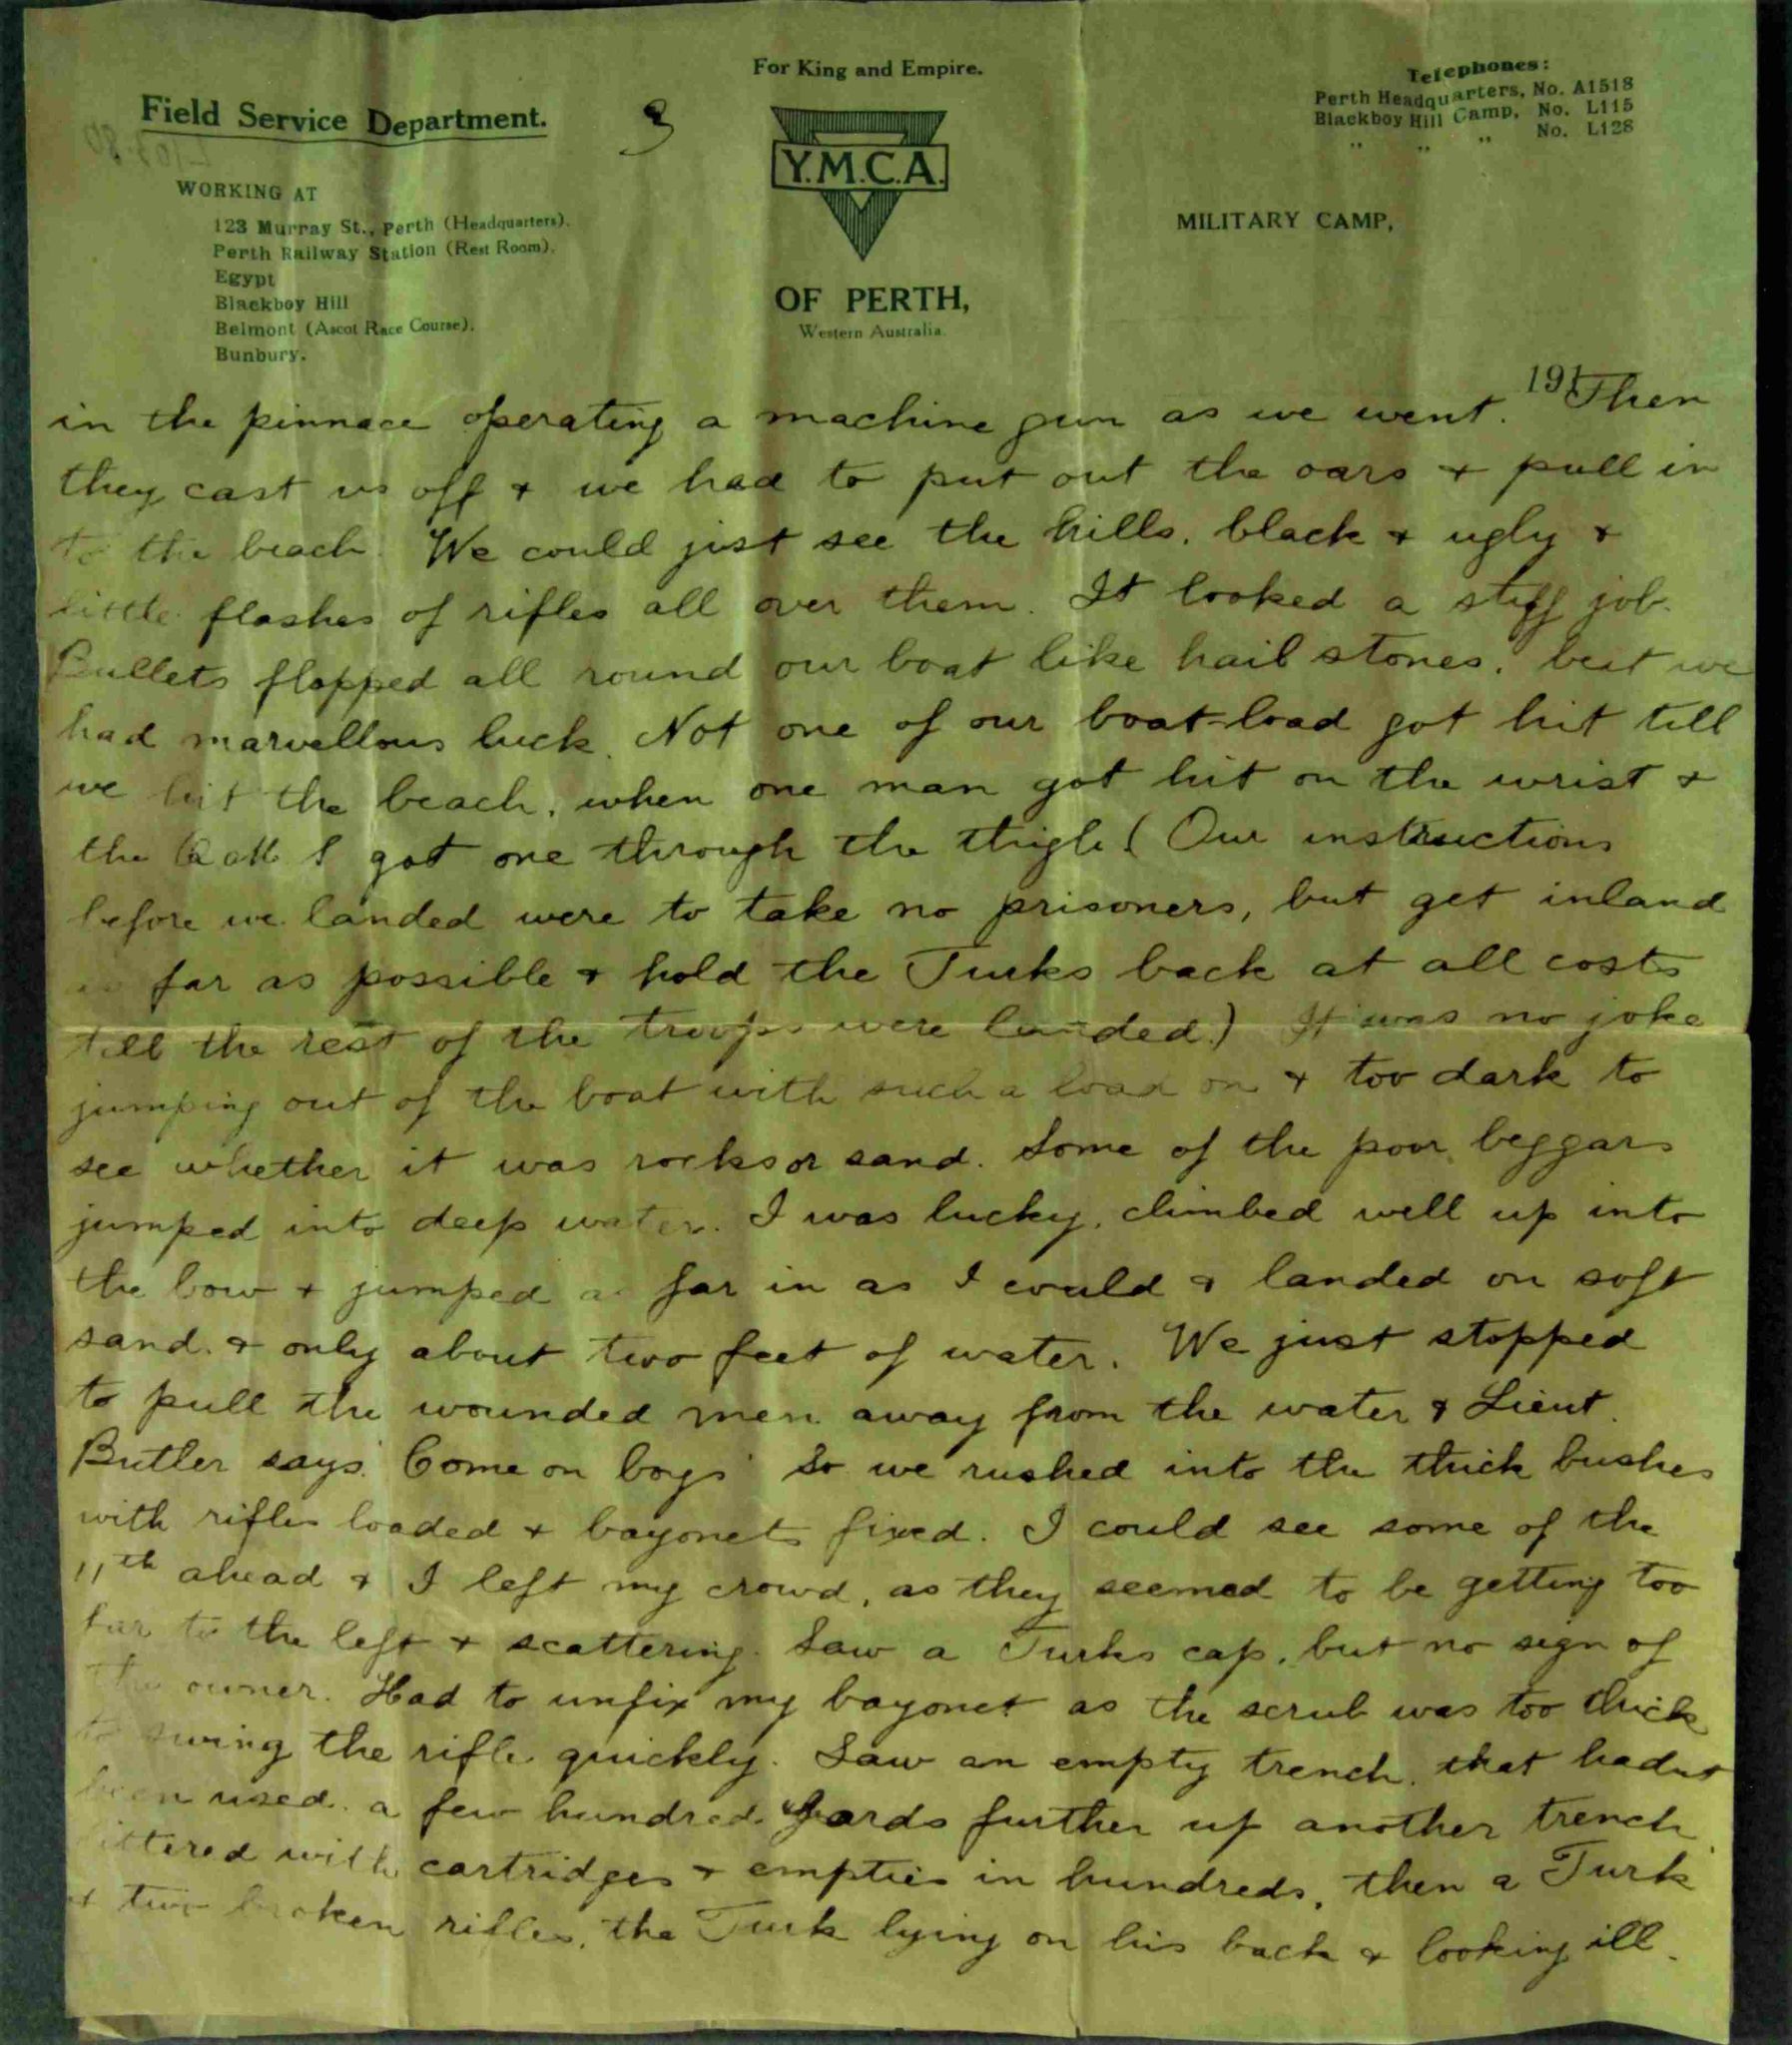 For King and Empire.
Field Service Department.
3
Telephones:
Perth Headquarters, No. A1518
Blackboy Hill Camp, No. L115
" " " No. L128
WORKING AT
123 Murray St., Perth (Headquarters).
Perth Railway Station (Rest Room).
Egypt
Blackboy Hill
Belmont (Ascot Race Course).
Bunbury.
Y.M.C.A.
OF PERTH,
Western Australia.
MILITARY CAMP,
191
in the pinnace operating a machine gun as we went. Then
they cast us off & we had to put out the oars & pull in
to the beach. We could just see the hills, black & ugly &
little flashes of rifles all over them. It looked a stiff job.
Bullets flopped all round our boat like hail stones, but we
had marvellous luck. Not one of our boat-load got hit till
we hit the beach, when one man got hit on the wrist &
the S got one through the thigh. (Our instructions
before we landed were to take no prisoners, but get inland
as far as possible & hold the Turks back at all costs
till the rest of the troops were landed.) It was no joke
jumping out of the boat with such a load on & too dark to
see whether it was rocks or sand. Some of the poor beggars
jumped into deep water. I was lucky, climbed well up into
the bow & jumped as far in as I could & landed on soft
sand. & only about two feet of water. We just stopped
to pull the wounded men away from the water & Lieut.
Butler says "Come on boys" So we rushed into the thick bushes
with rifles loaded & bayonets fixed. I could see some of the
11th ahead & I left my crowd, as they seemed to be getting too
far to the left & scattering. Saw a Turks cap, but no sign of
the owner. Had to unfix my bayonet as the scrub was too thick
to swing the rifle quickly. Saw an empty trench, that hadnt
been used, a few hundred yards further up another trench
littered with cartridges & empties in hundreds, then a Turk
& two broken rifles, the Turk lying on his back & looking ill.